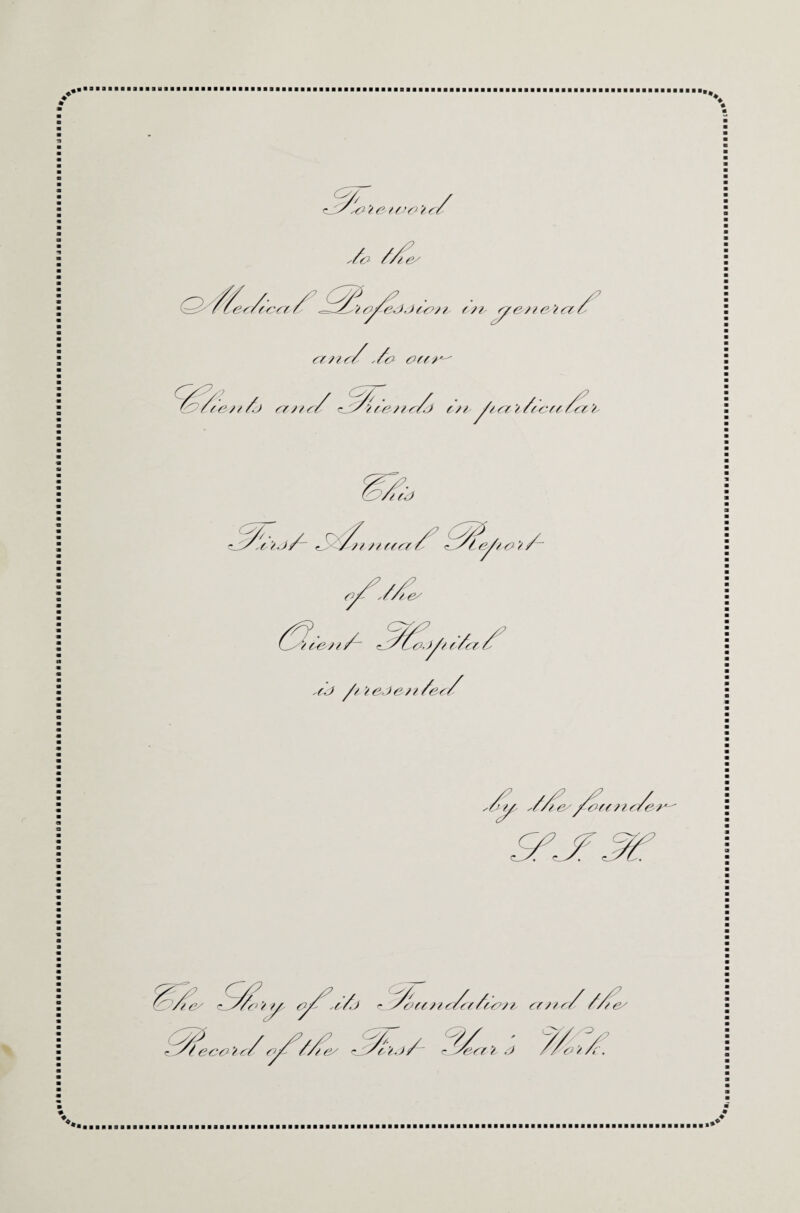 Foreword
to the
Medical Profession in general
and to our
Clients and Friends in particular
This
First Annual Report
of the
Orient Hospital
is presented
by the founder
The Story of its Foundation and the
Record of the First Year's Work.